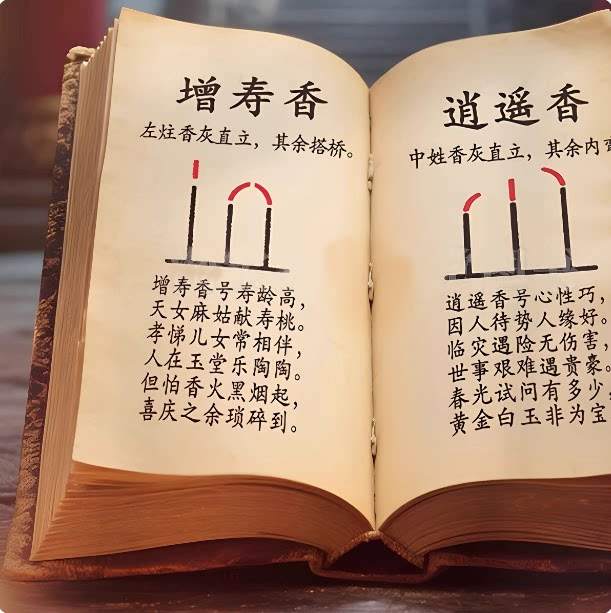 增寿香
左炷香灰直立，其余搭桥。
增寿香号寿龄高，
天女麻姑献寿桃。
孝悌儿女常相伴，
人在玉堂乐陶陶。
但怕香火黑烟起，
喜庆之余琐碎到。
逍遥香
中姓香灰直立，其余内
逍遥香号心性巧，
因人待势人缘好。
临灾遇险无伤害，
世事艰难遇贵豪。
春光试问有多少，
黄金白玉非为宝